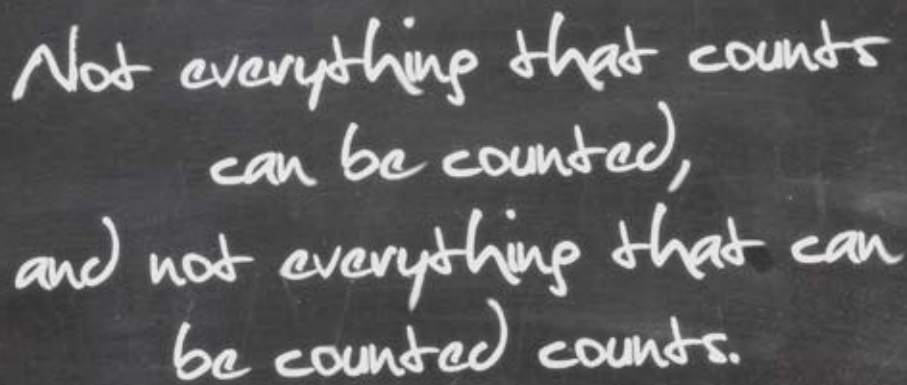 Not everything that counts
can be counted,
and not everything that can
be counted counts.